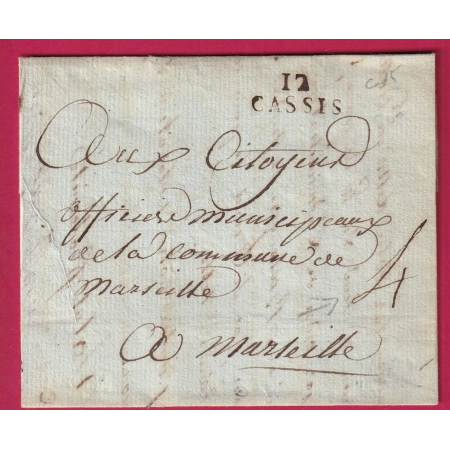 12
CASSIS
Aux Citoyens
officiers municipaux
de la commune de
marseille
4
a marseille